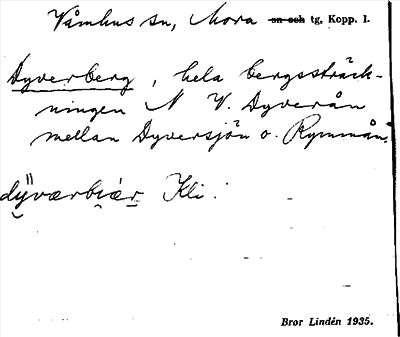 Våmhus sn, Mora sn och tg, Kopp. l.
Dyverberg, hela bergssträck-
ningen N V. Dyverån
mellan Dyversjön o. Rymmån.
Kli.
Bror Lindén 1935.